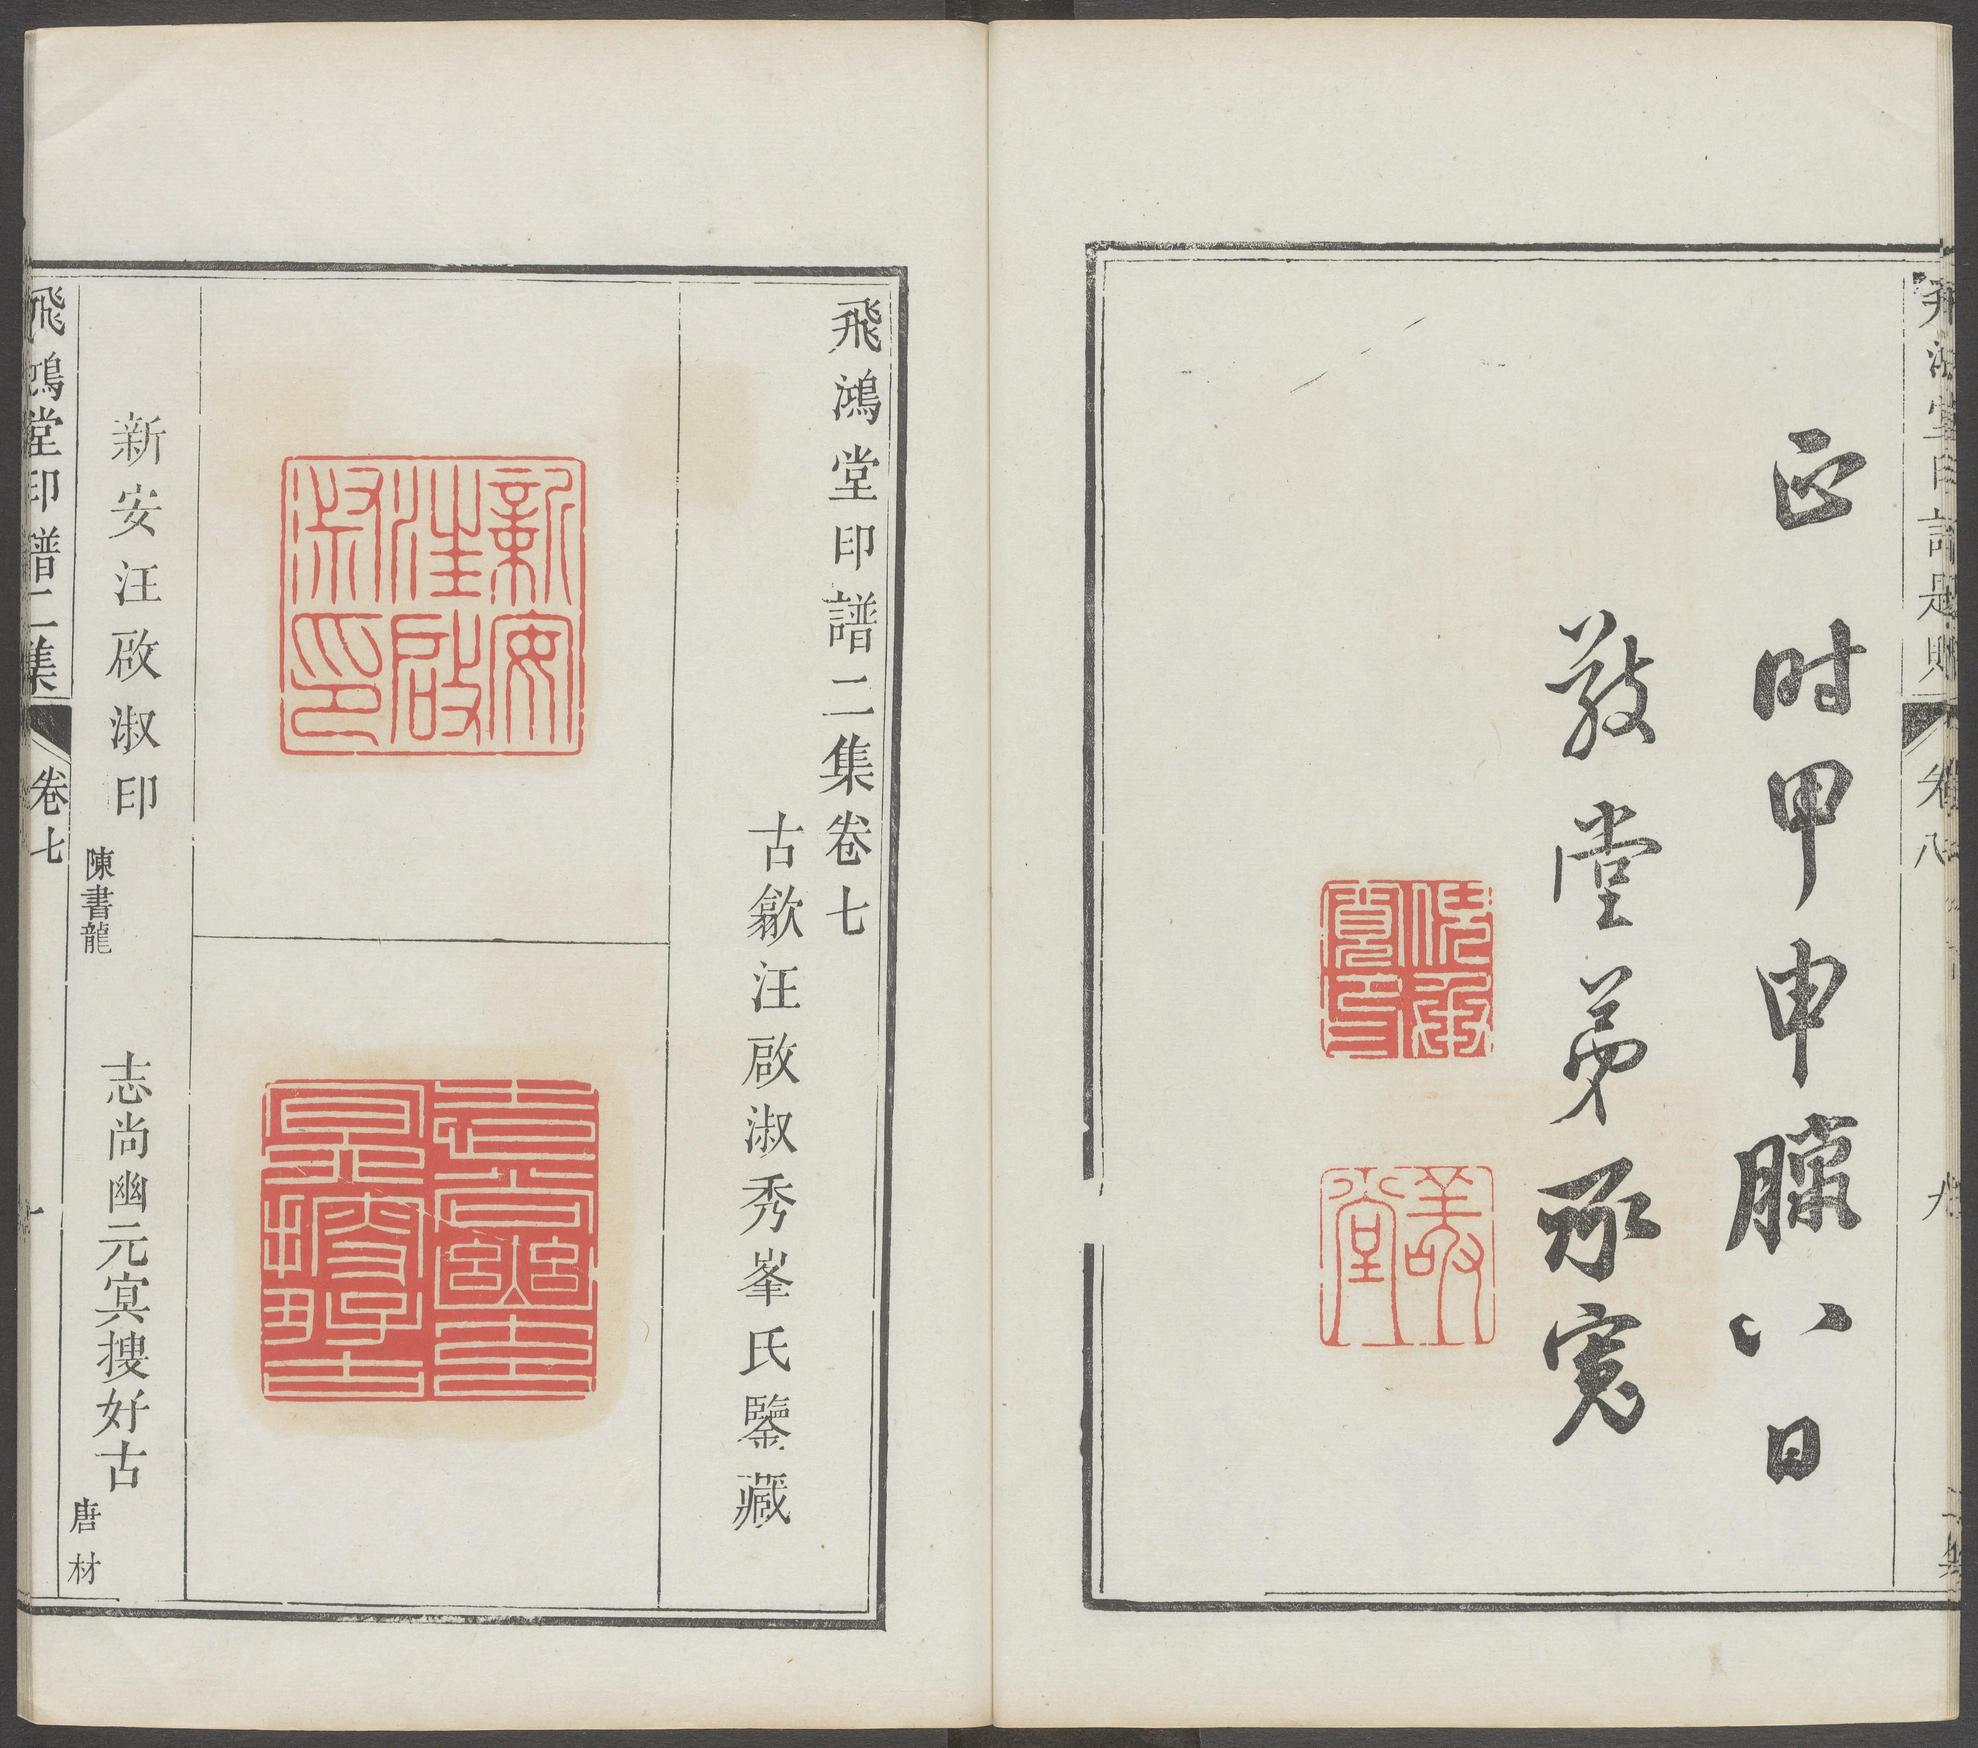 正時甲申臘八日
敬堂弟承寬
飛鴻堂印譜二集卷七
古歙汪啟淑秀峯氏鑒藏
新安汪啟淑印
新安汪啟淑印
陳書龍
志尚幽元冥搜好古
志尚幽元冥搜好古
唐材
飛鴻堂印譜二集
卷七